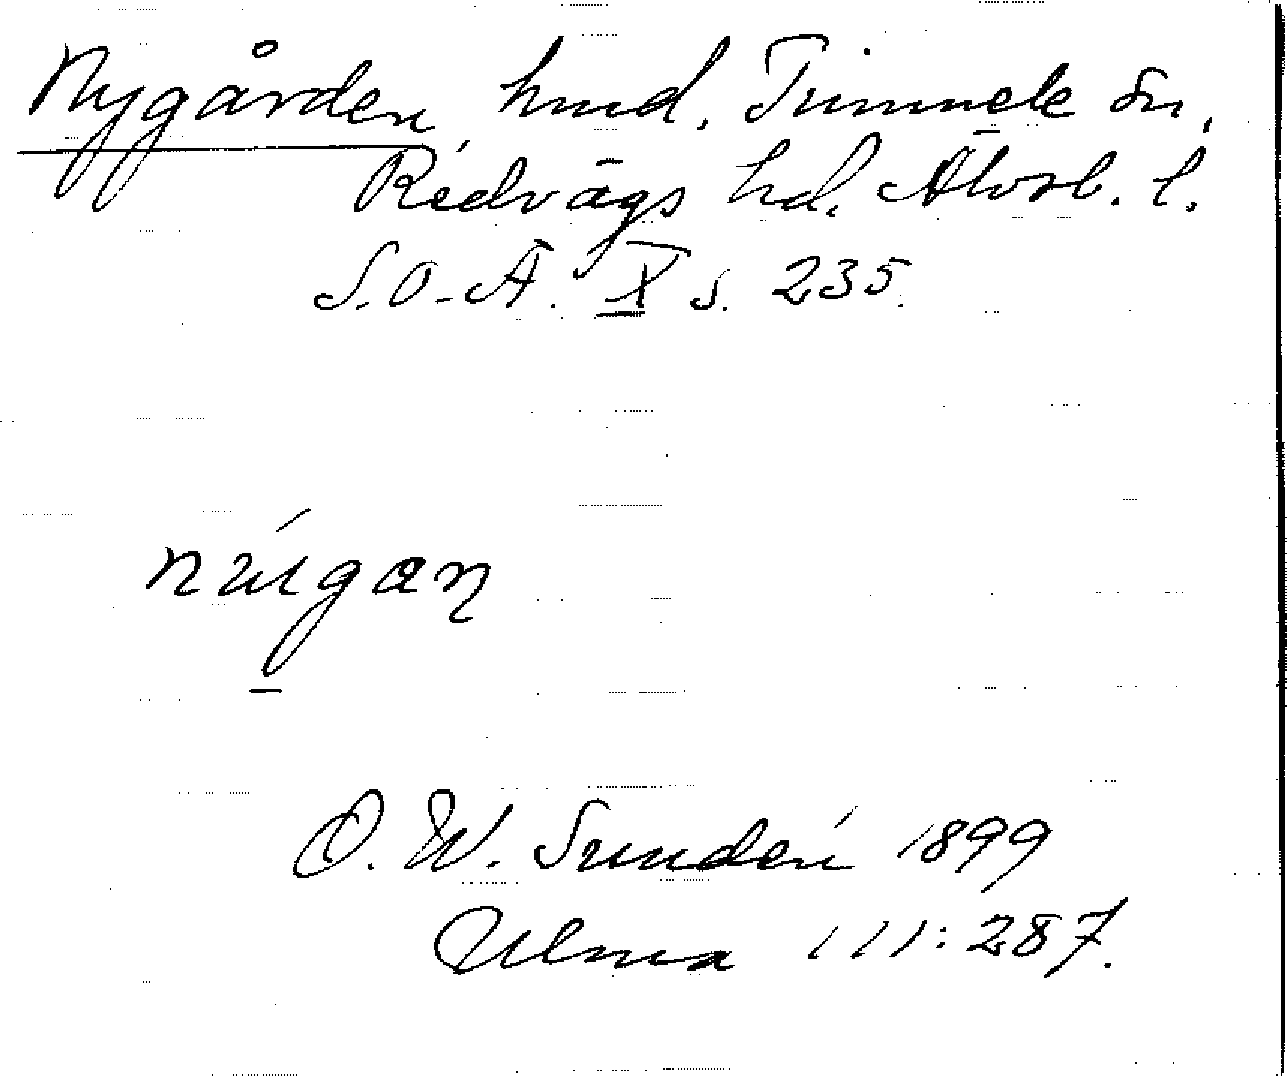 Nygården, hmd, Timmele sn,
Redvägs hd. Älvsb. l.
S.O.Ä. X s. 235.
O. W. Sundén 1899
Ulma 111:287.